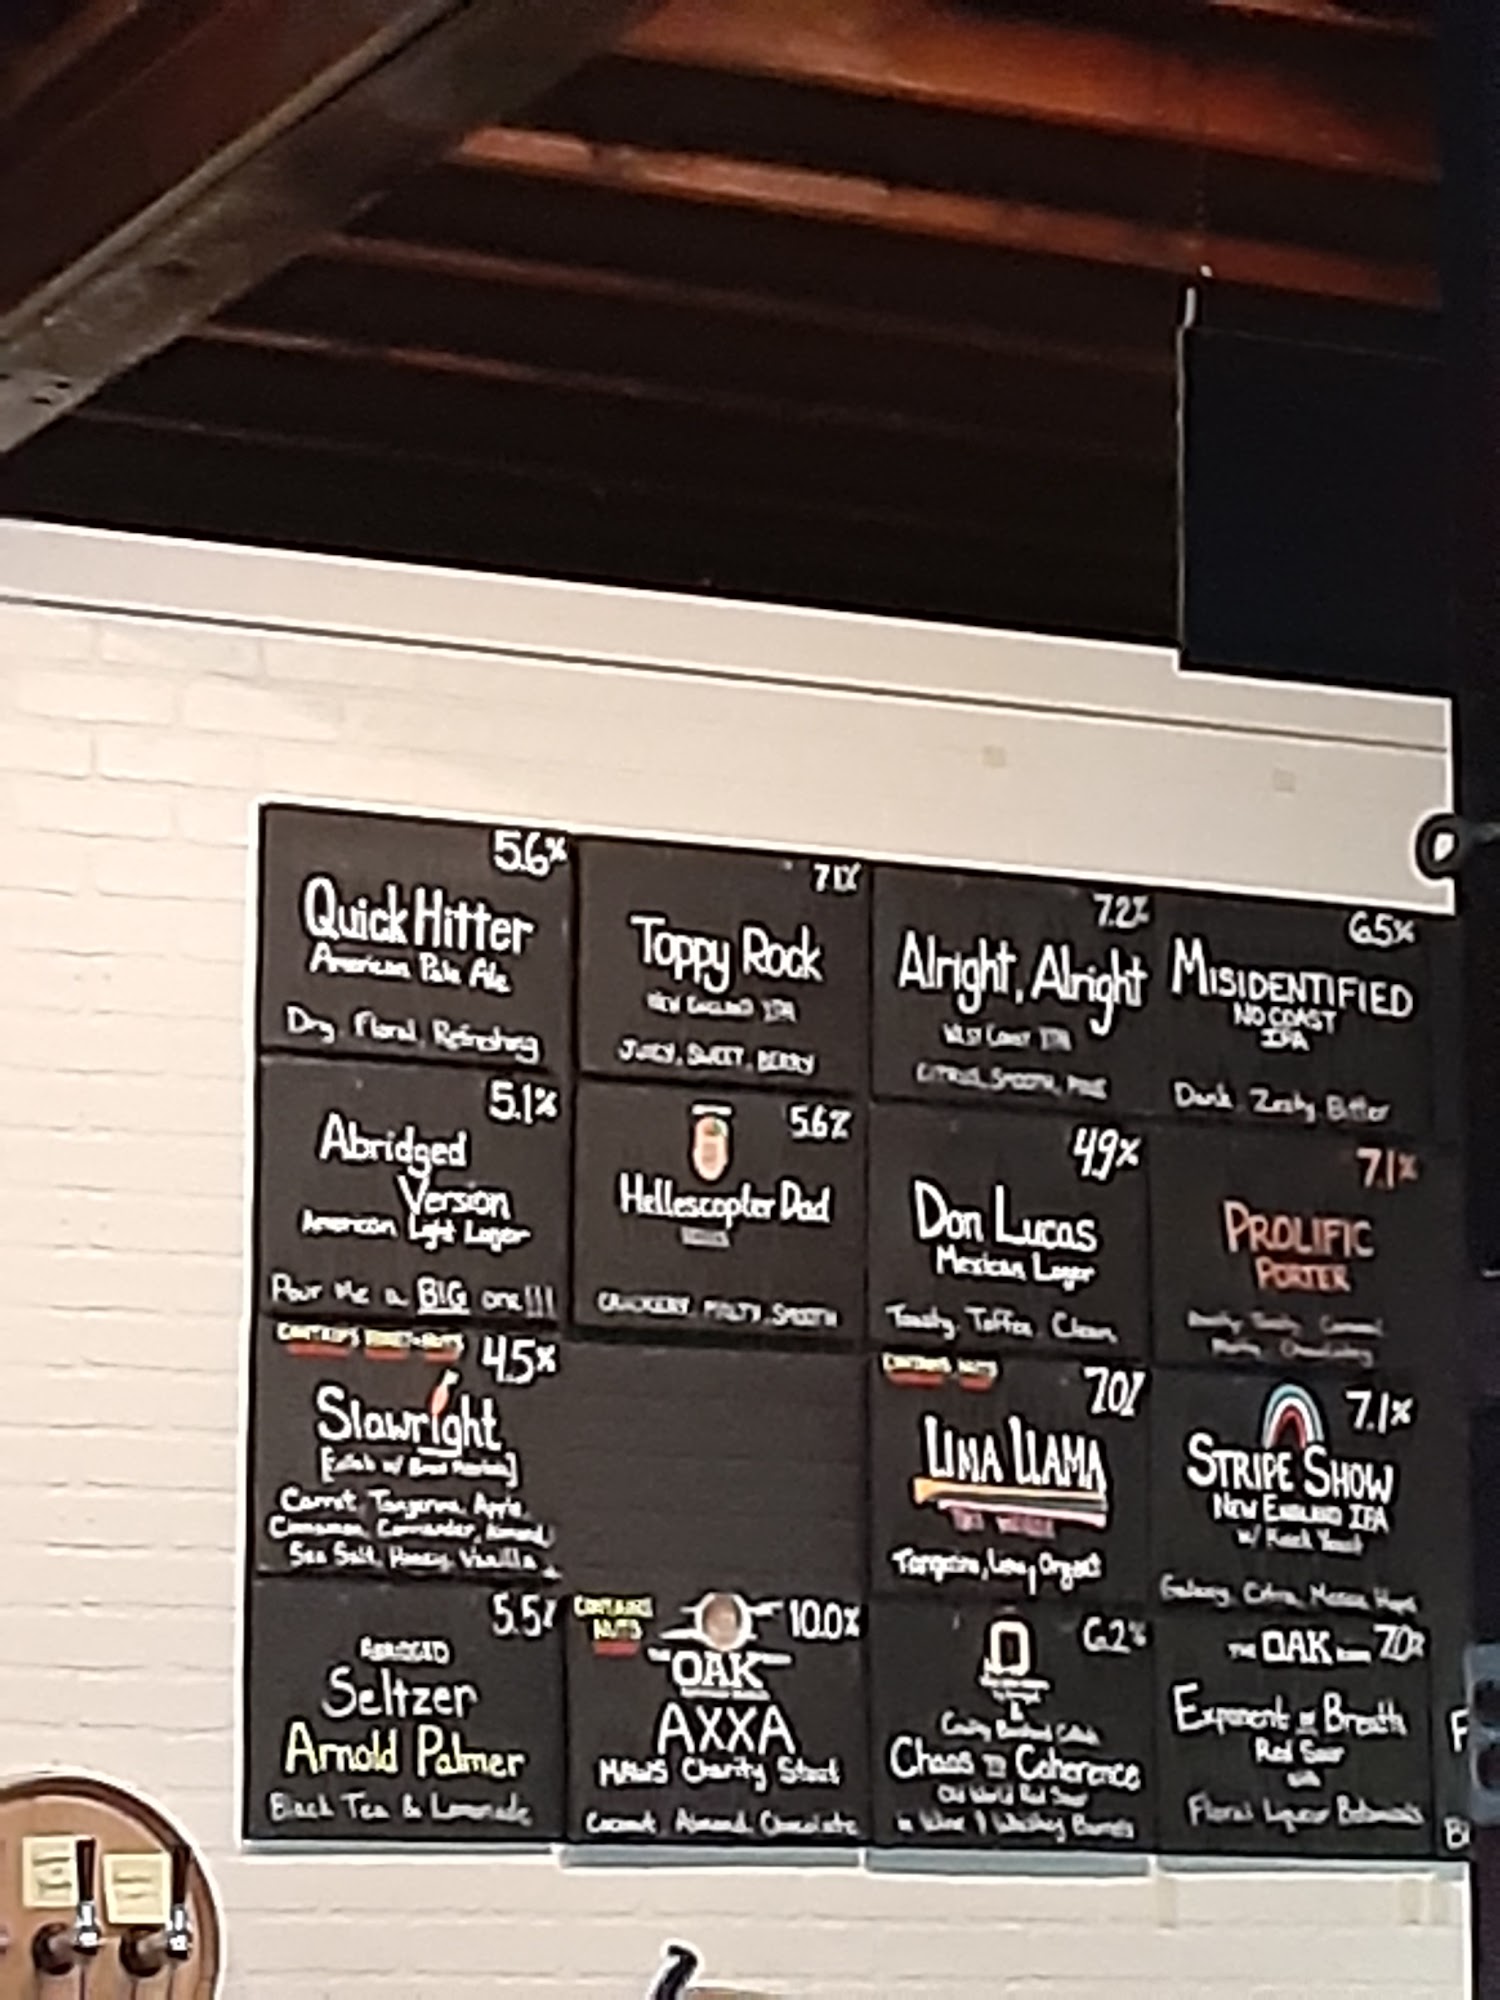 5.6%
Quick Hitter
American Pale Ale
Dry, Floral, Refreshing
7.1%
Toppy Rock
NEW ENGLAND IPA
JUICY, SWEET, BERRY
7.2%
Alright, Alright
WEST COAST IPA
CITRUS, SMOOTH, PINE
6.5%
MISIDENTIFIED
NO COAST
IPA
Dank, Zesty, Bitter
5.1%
Abridged
Version
American Light Lager
Pour Me a BIG one!!!
5.6%
Hellescopter Dad
CRACKERY, MALTY, SMOOTH
4.9%
Don Lucas
Mexican Lager
Toasty, Toffee, Clean
7.1%
PROLIFIC
PORTER
4.5%
Slawright
Carrot, Tangerine, Apple,
Cinnamon, Coriander, Almond,
Sea Salt, Honey, Vanilla
CONTAINS NUTS
7.0%
LIMA LLAMA
7.1%
STRIPE SHOW
NEW ENGLAND IPA
Galaxy, Citra, Hops
5.5%
ABRIDGED
Seltzer
Arnold Palmer
Black Tea & Lemonade
CONTAINS
NUTS
10.0%
THE
OAK
AXXA
MAWS Charity Stout
Coconut, Almond, Chocolate
6.2%
Chaos to Coherence
Old World Red Sour
in Wine & Whiskey Barrels
THE OAK 7.0%
Exponent of Breath
Red Sour
with
Floral Liqueur Botanicals